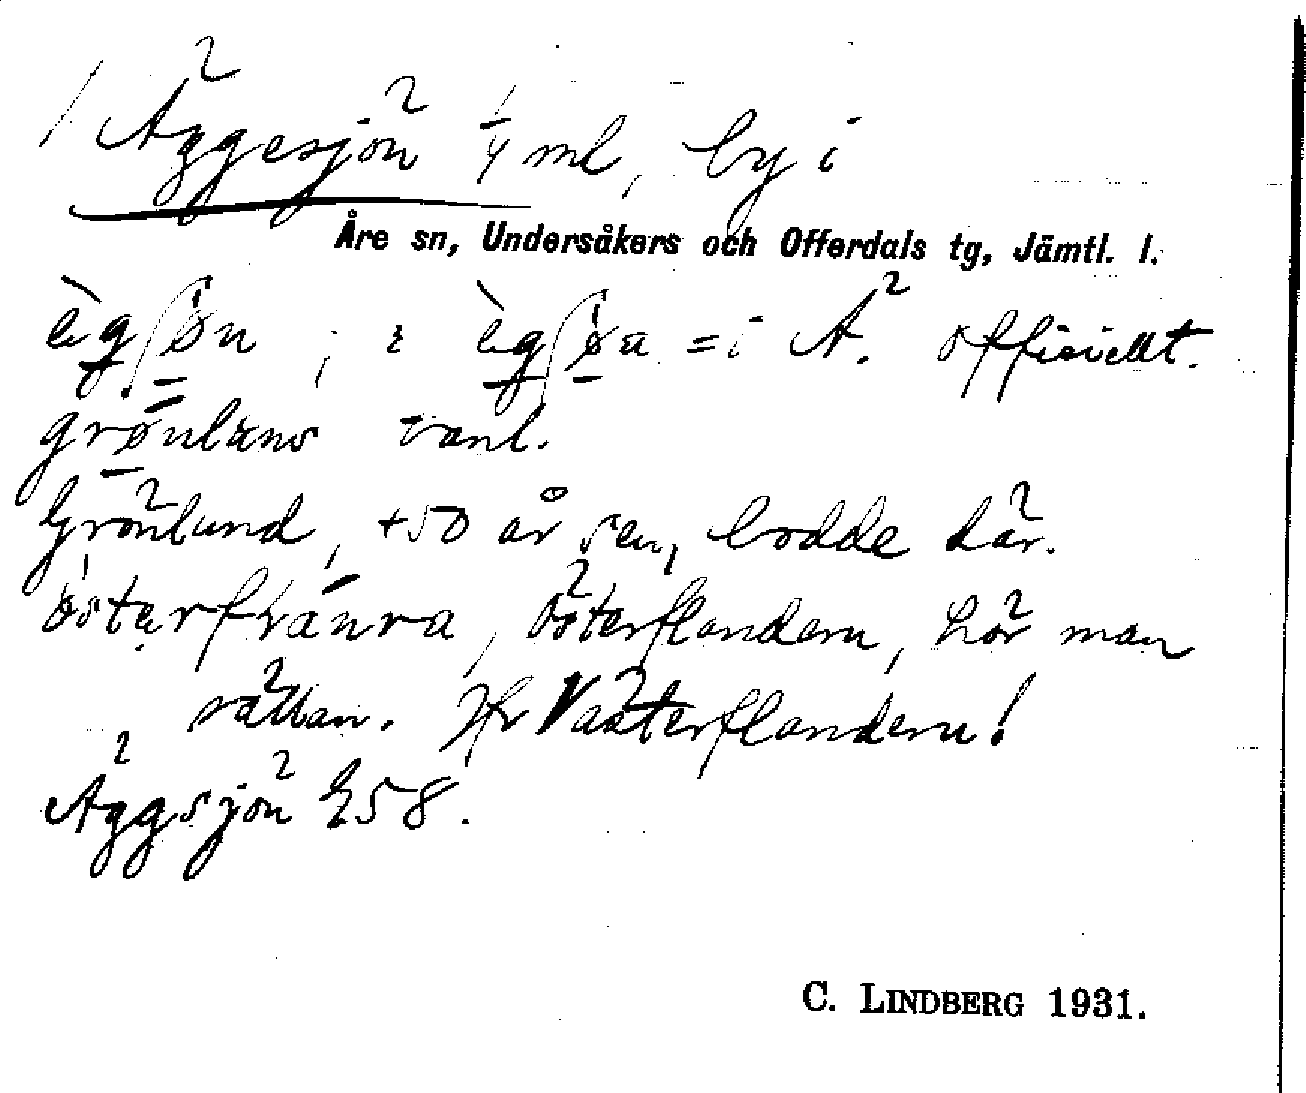 Äggesjön 1/4 ml, by i
Åre sn, Undersåkers och Offerdals tg, Jämtl. l.
ègʃøn ; i ègʃøa = i Ä. officiellt.
grønlans vanl.
Grönlund, +50 år sen, bodde där.
österflanra, Österflandern, hör man
sällan. Jfr Västerflandern!
Äggsjön 258.
C. LINDBERG 1931.